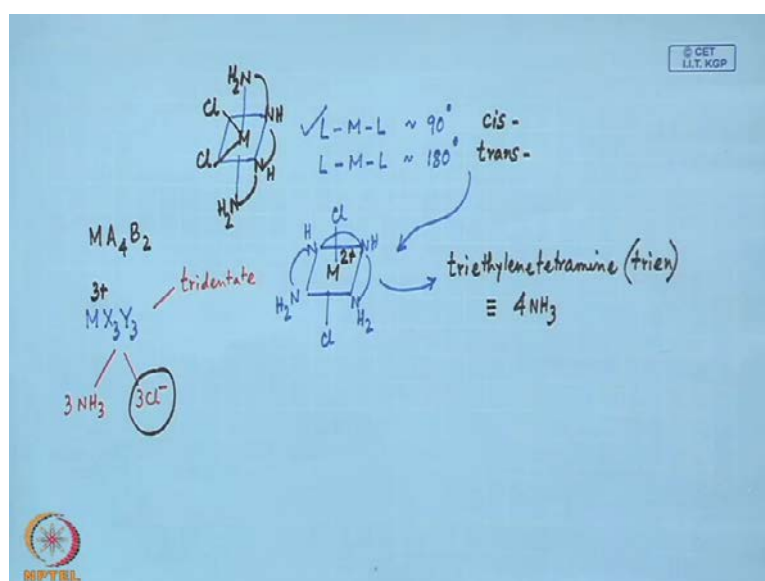 © CET
I.I.T. KGP
H₂N
Cl
NH
M
Cl
N
H
H₂N
✓L-M-L ~ 90° cis-
L-M-L ~ 180° trans-
MA₄B₂
3+
MX₃Y₃
tridentate
3 NH₃
3Cl⁻
Cl
H
N
NH
M²⁺
H₂N
N
H₂
Cl
triethylenetetramine (trien)
≡ 4NH₃
NPTEL